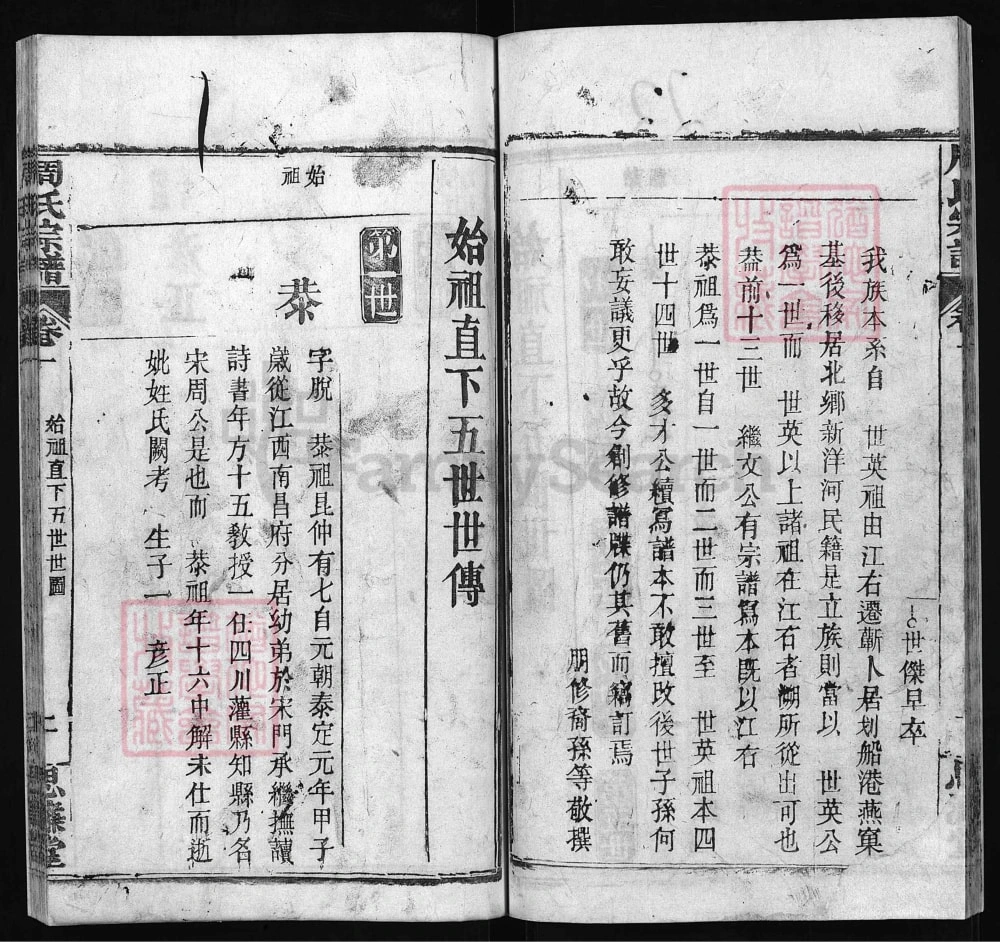 周氏宗譜
卷一
世傑早卒
我族本系自 世英祖由江右遷蘄卜居划船港燕窠
基後移居北鄉新洋河民籍是立族則當以 世英公
爲一世而 世英以上諸祖在江右者溯所從出可也
葢前十三世 繼文公有宗譜爲本既以江右
㳟祖爲一世自一世而二世而三世至 世英祖本四
世十四世 多才公續爲譜本不敢擅改後世子孫何
敢妄議更乎故今創修譜牒仍其舊而竊訂焉
朋修裔孫等敬撰
始祖直下五世世傳
始祖
第一世
㳟
字脫 㳟祖昆仲有七自元朝泰定元年甲子
歲從江西南昌府分居幼弟於宋門承繼撫讀
詩書年方十五教授一任四川灌縣知縣乃名
宋周公是也而 㳟祖年十六中解未仕而逝
妣姓氏闕考 生子一 彦正
周氏宗譜
卷一
始祖直下五世世圖
思濂堂
FamilySearch